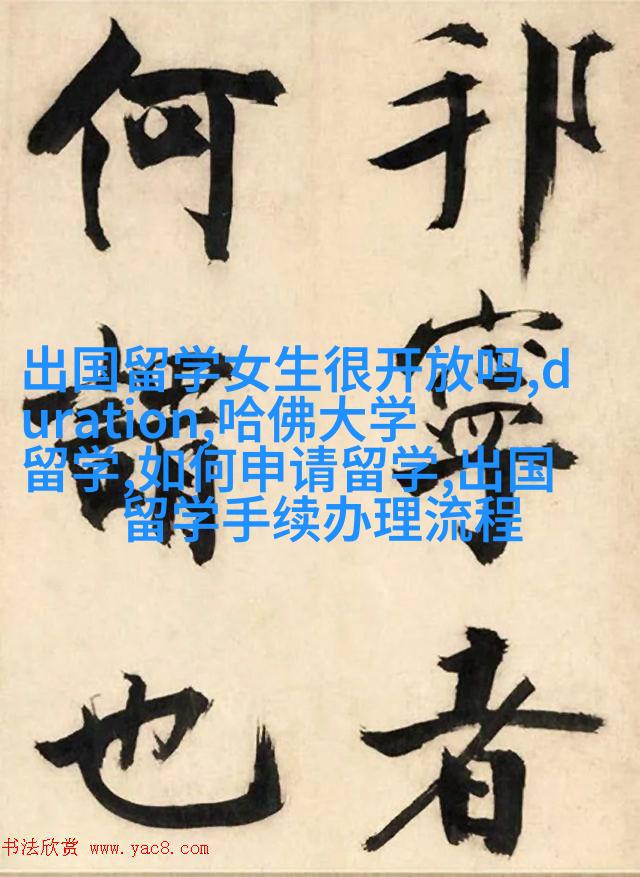 邦寧者
何謂也
出国留学女生很开放吗,d
uration,哈佛大学
留学,如何申请留学,出国
留学手续办理流程
书法欣赏 www.yac8.com